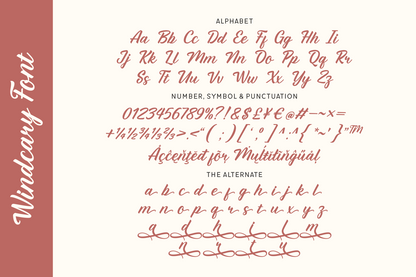 Windcary Font
ALPHABET
Aa Bb Cc Dd Ee Ff Gg Hh Ii
Jj Kk Ll Mm Nn Oo Pp Qq Rr
Ss Tt Uu Vv Ww Xx Yy Zz
NUMBER, SYMBOL & PUNCTUATION
0123456789%?!&$£¥€@#—–~×=
+¼½¾⅓⅔>.<“(;)[‘,°]^:^{"~'}”™
Açcented for Multilingúál
THE ALTERNATE
a b c d e f g h i j k l
m n o p q r s t u x y z
a d h i l m
n r t u